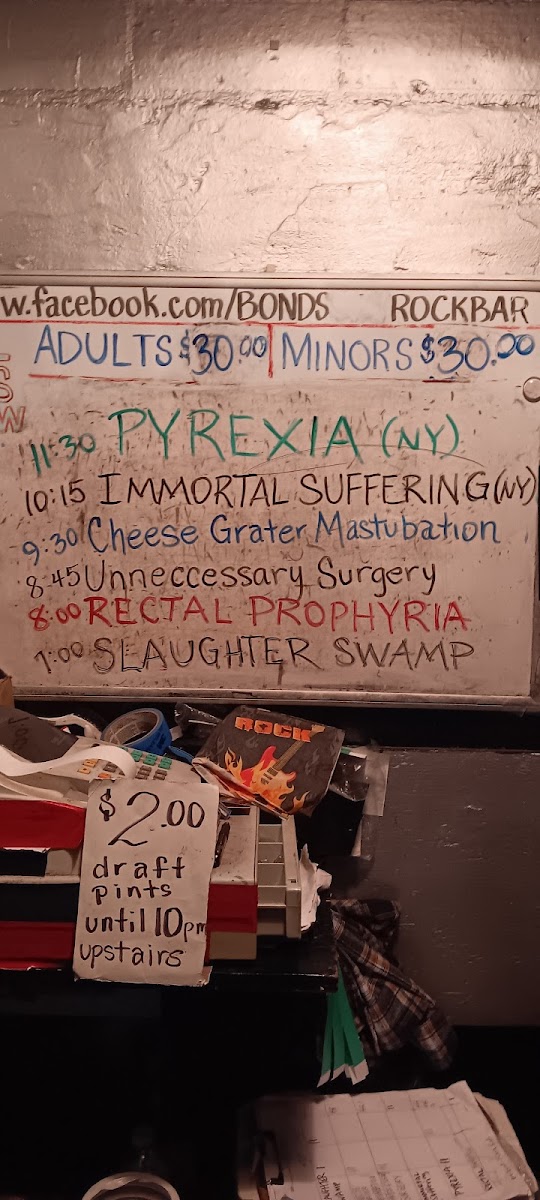 w.facebook.com/BONDS ROCKBAR
ADULTS $30.00 MINORS $30.00
11:30 PYREXIA (NY)
10:15 IMMORTAL SUFFERING (NY)
9:30 Cheese Grater Mastubation
8:45 Unneccessary Surgery
8:00 RECTAL PROPHYRIA
7:00 SLAUGHTER SWAMP
ROCK
$2.00
draft
pints
until 10pm
upstairs